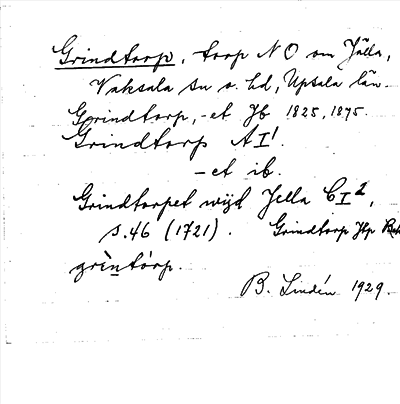 Grindtorp, torp NO om Jälla,
Vaksala sn o. hd, Upsala län.
Grindtorp, -et Jb 1825, 1875.
Grindtorp AI¹.
-et ib.
Grindtorpet wijd Jella CI²,
s. 46 (1721). Grindtorp Jbp
grìntórp.
B. Lindén 1929.